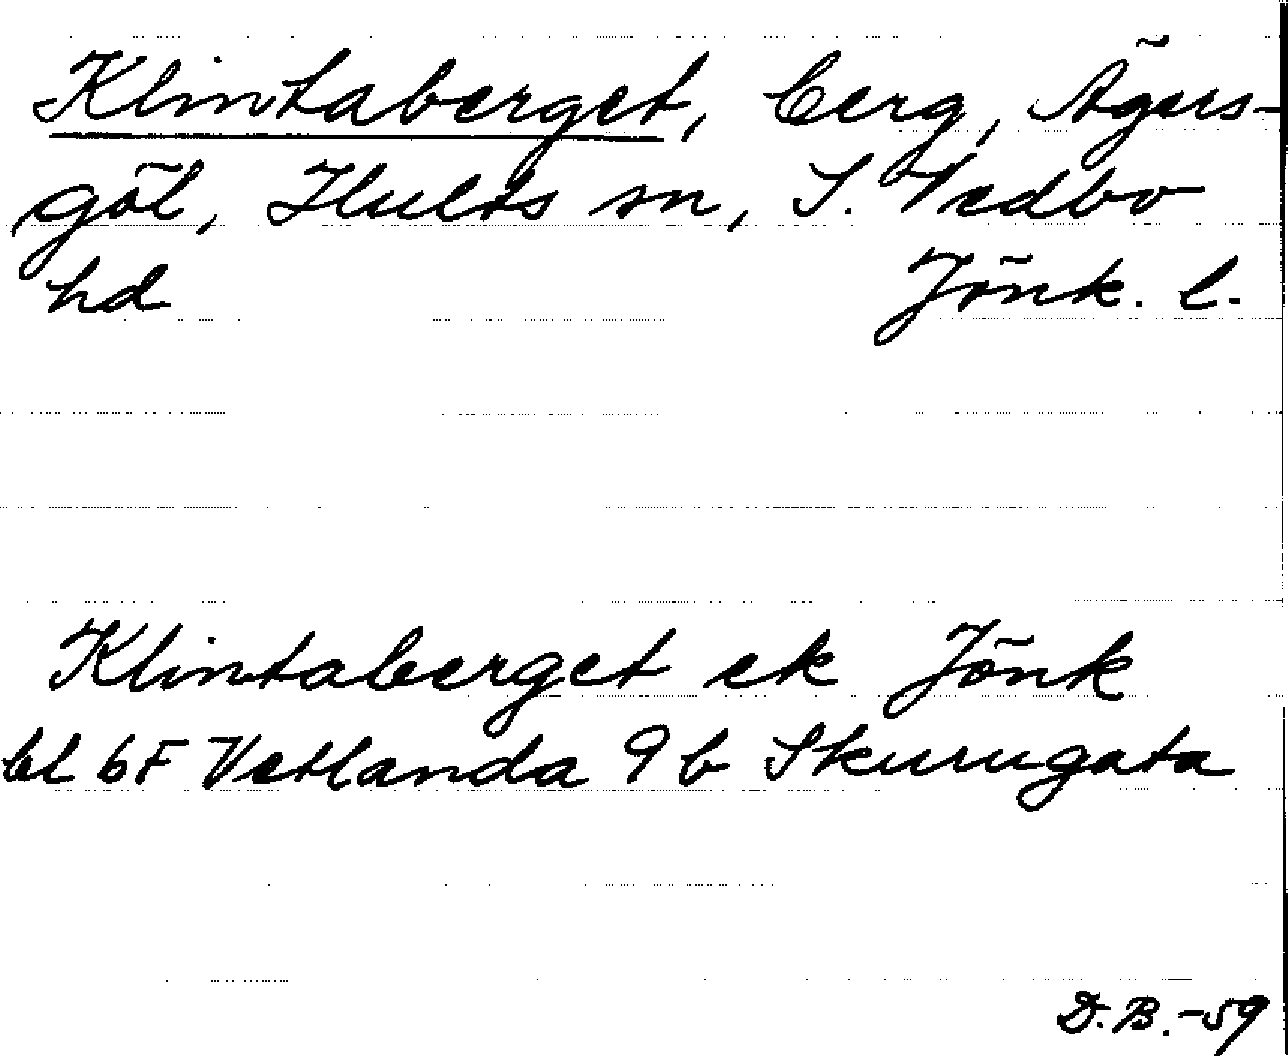 Klintaberget, berg, Ägers-
göl, Hults sn, S. Vedbo
hd Jönk. l.
Klintaberget ek Jönk
bl 6F Vetlanda 9 b Skurugata
D.B.-59